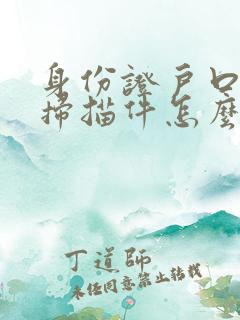 身份證戶口
掃描件怎麼
丁道師
未經同意禁止轉載